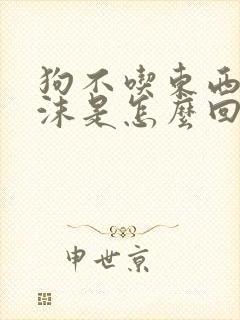 狗不喫東西
沫是怎麼回
申世京